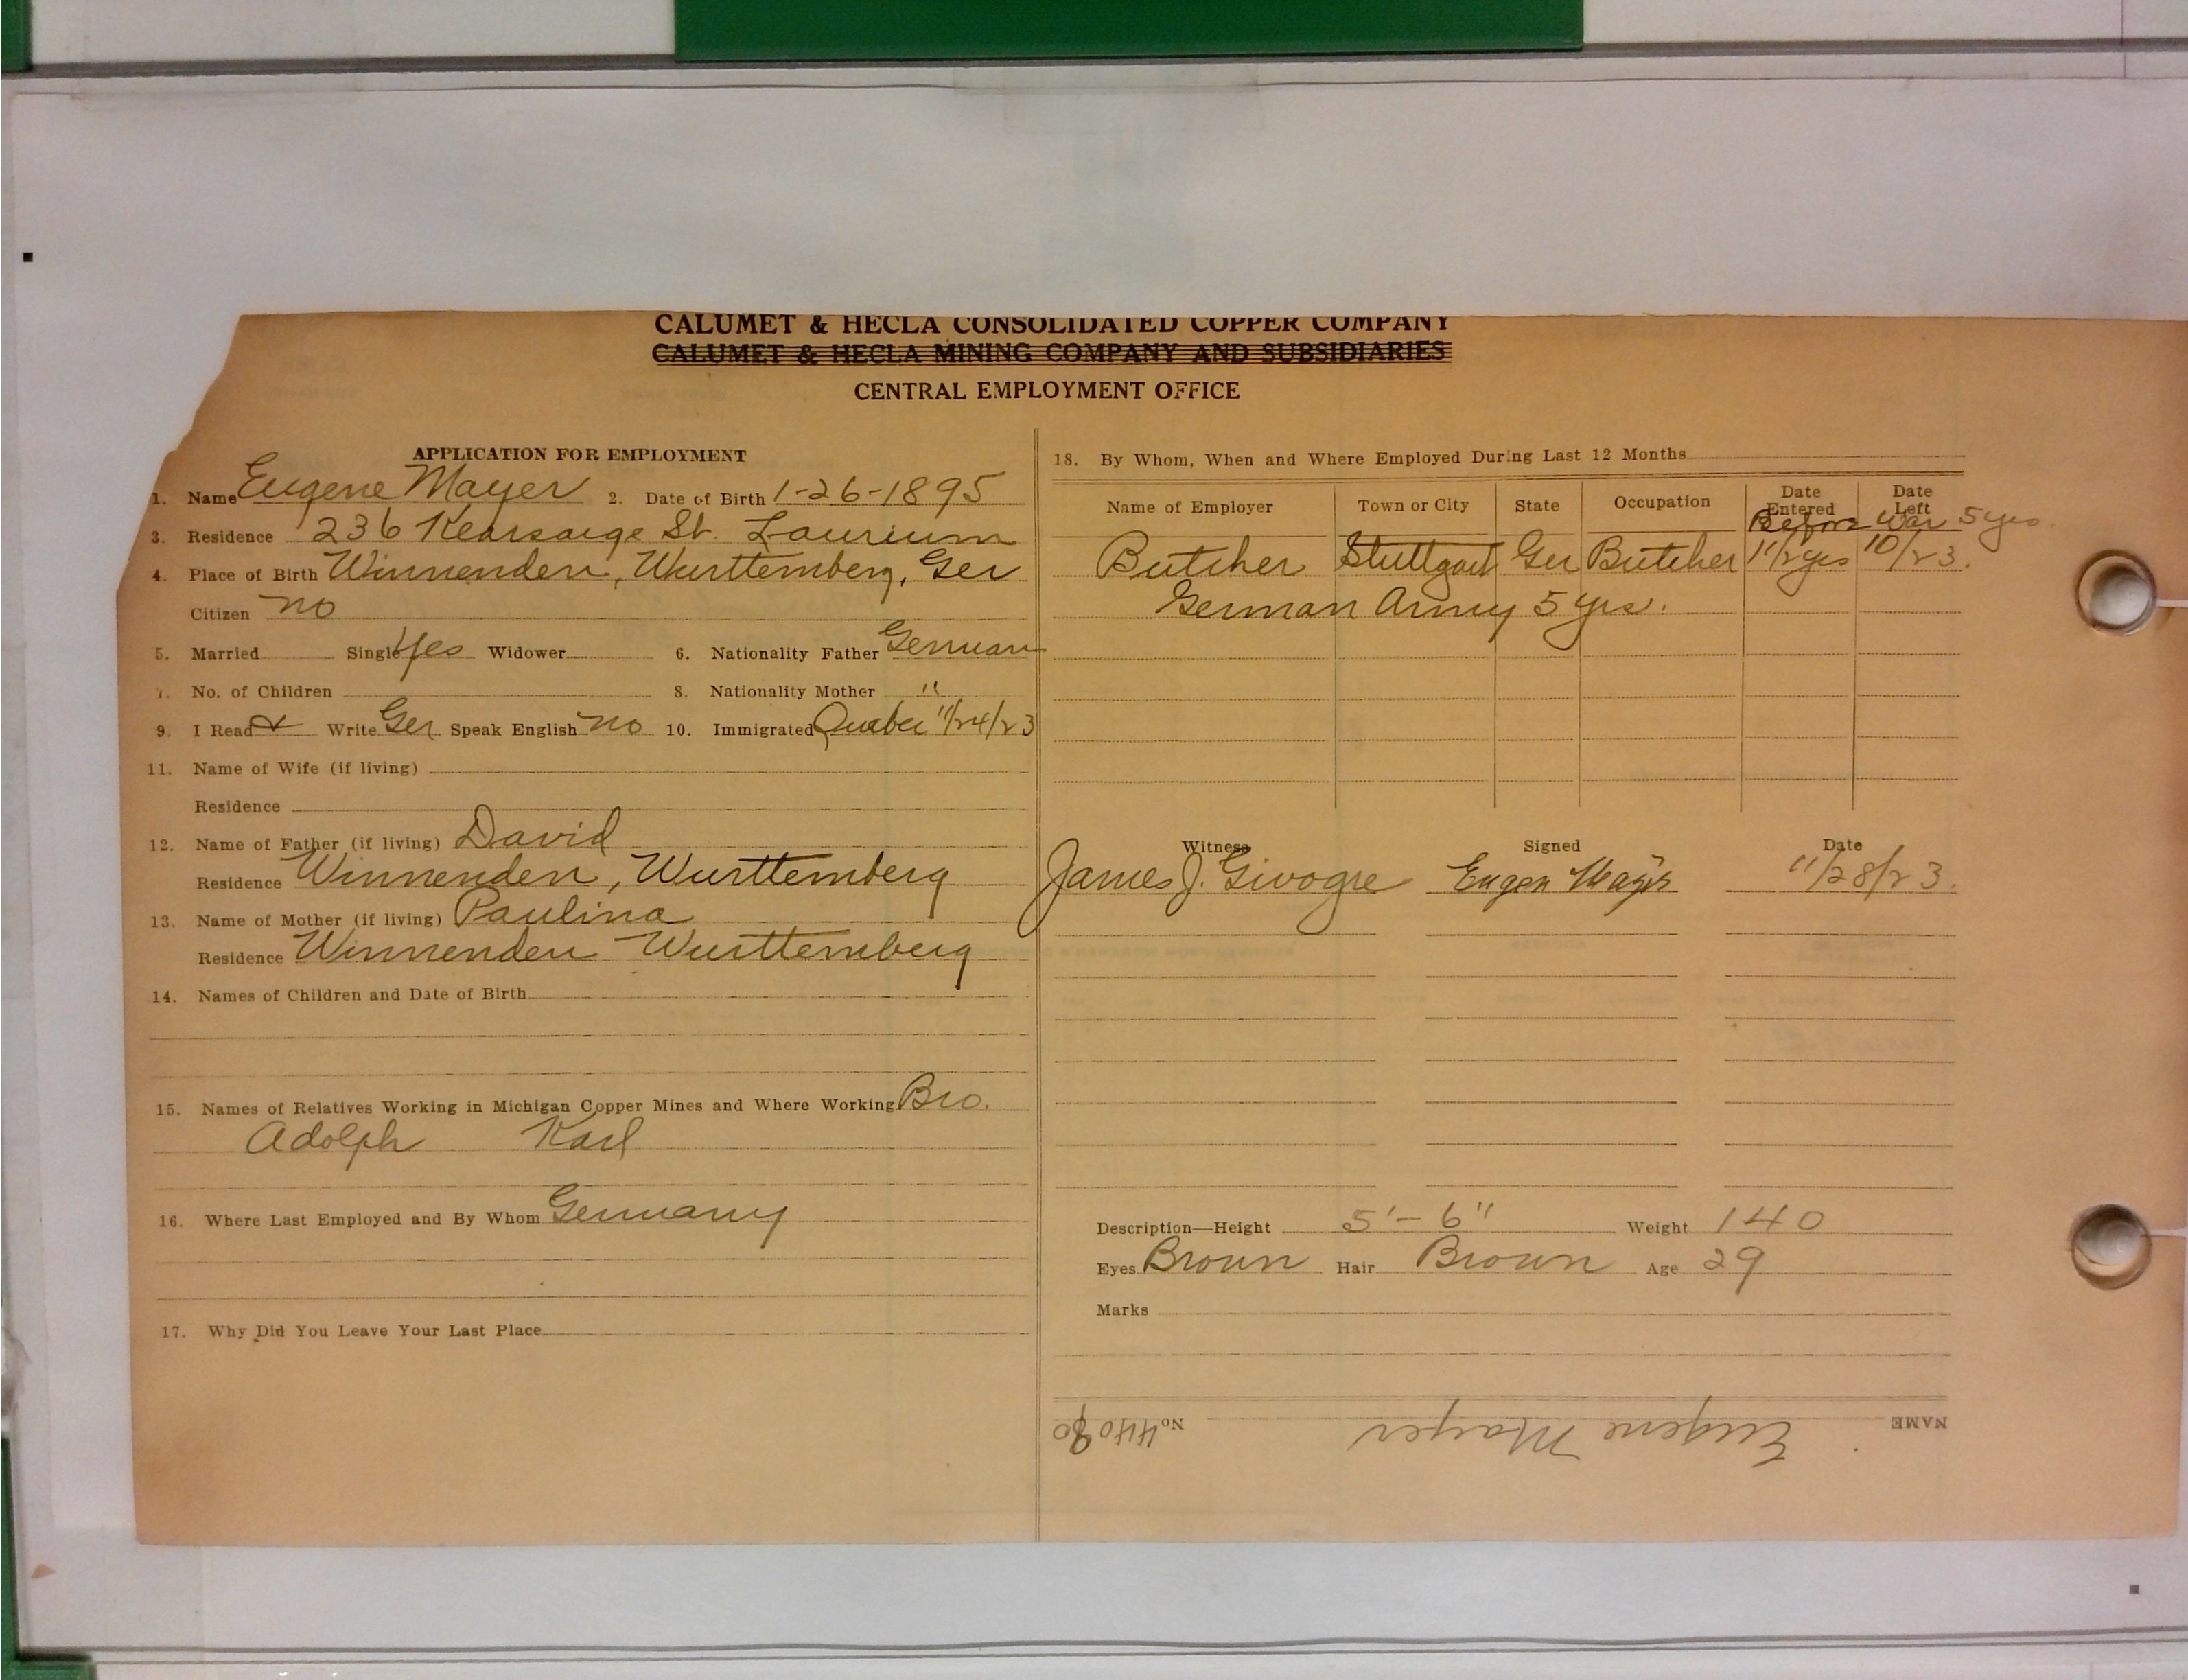 CALUMET & HECLA CONSOLIDATED COPPER COMPANY
CALUMET & HECLA MINING COMPANY AND SUBSIDIARIES
CENTRAL EMPLOYMENT OFFICE
APPLICATION FOR EMPLOYMENT
1. Name Eugene Mayer 2. Date of Birth 1-26-1895
3. Residence 236 Kearsarge St. Laurium
4. Place of Birth Winnenden, Wurttemberg, Ger
Citizen no
5. Married Single Yes Widower 6. Nationality Father German
7. No. of Children 8. Nationality Mother "
9. I Read & Write Ger Speak English no 10. Immigrated Quebec 11/24/23
11. Name of Wife (if living)
Residence
12. Name of Father (if living) David
Residence Winnenden, Wurttemberg
13. Name of Mother (if living) Paulina
Residence Winnenden Wurttemberg
14. Names of Children and Date of Birth
15. Names of Relatives Working in Michigan Copper Mines and Where Working Bro.
Adolph Karl
16. Where Last Employed and By Whom Germany
17. Why Did You Leave Your Last Place
18. By Whom, When and Where Employed During Last 12 Months
Name of Employer Town or City State Occupation Date Entered Date Left
Before War 5 yrs.
Butcher Stuttgart Ger Butcher 1 1/2 yrs 10/23.
German Army 5 yrs.
Witness Signed Date
James J. Givogre Eugen Mayer 11/28/23.
Description—Height 5'-6" Weight 140
Eyes Brown Hair Brown Age 29
Marks
NAME Eugene Mayer No.